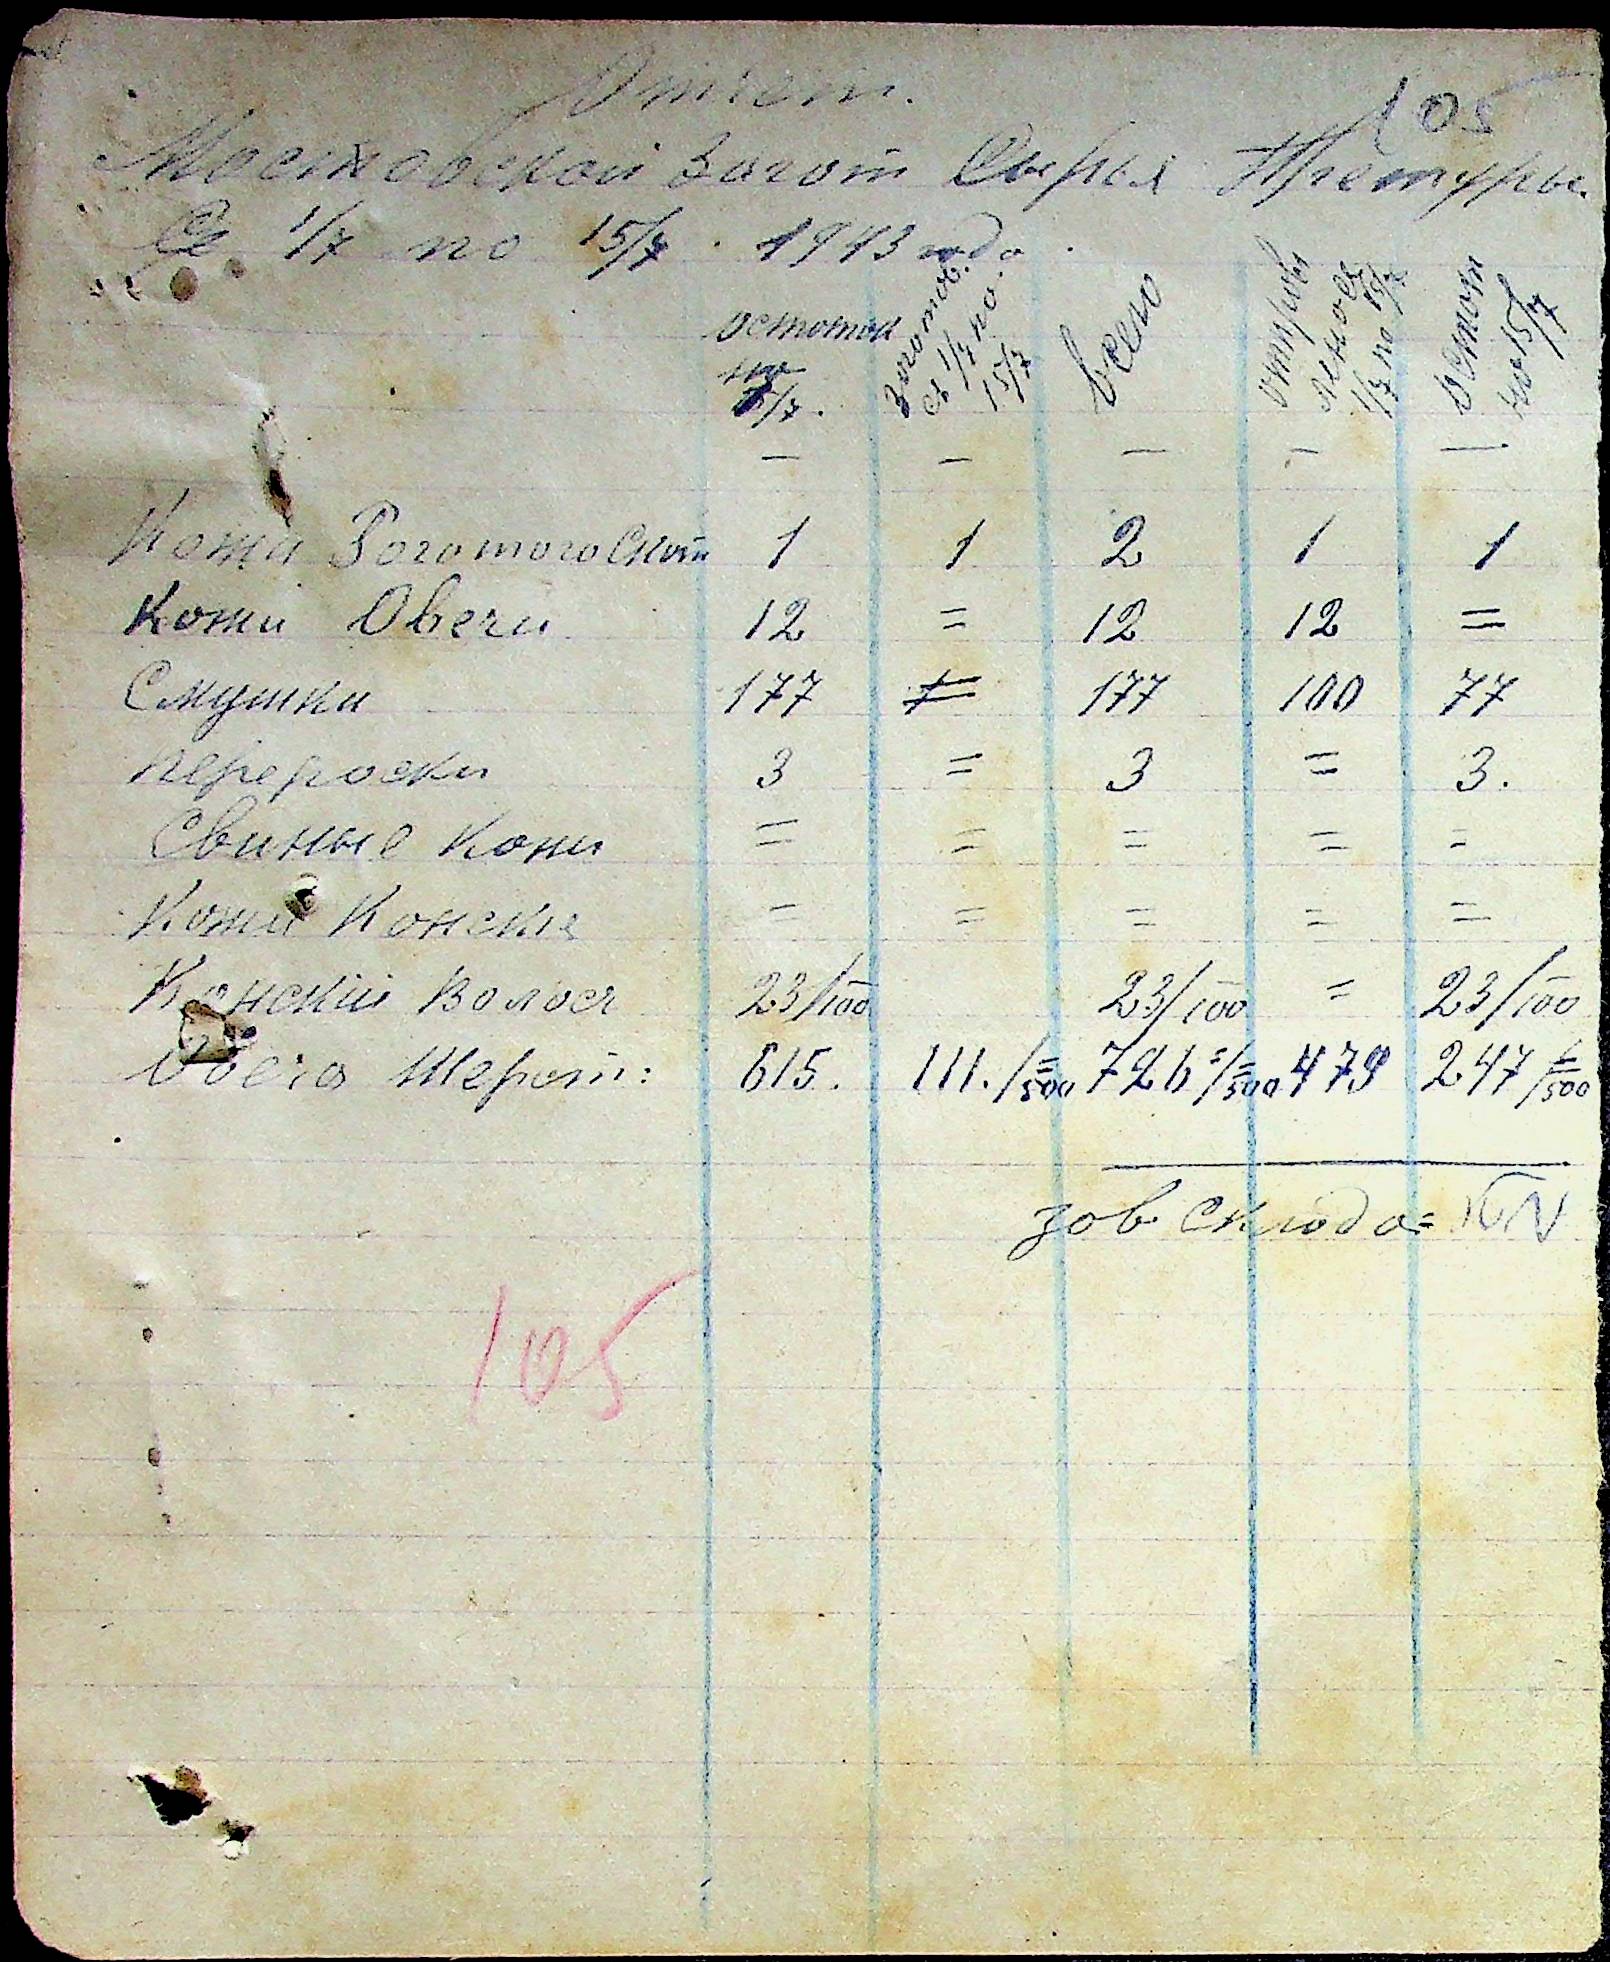 Отчет.
105
Мостовской загот Сырья
С 1/7 по 15/7. 1943 года.
остоток на 1/7. заготов. с 1/7 по 15/7 всего отправленое с 1/7 по 15/7 остат на 15/7
— — — — —
Кожи Рогатого Скот 1 1 2 1 1
Кожи Овечи 12 = 12 12 =
Смушки 177 = 177 100 77
перероски 3 = 3 = 3.
Свиные кожи = = = = =
Кожи Конские = = = = =
Конский Волося 23/100 23/100 = 23/100
Овеча Шерст: 615. 111./500 726/500 479 247/500
зов склодо=
105